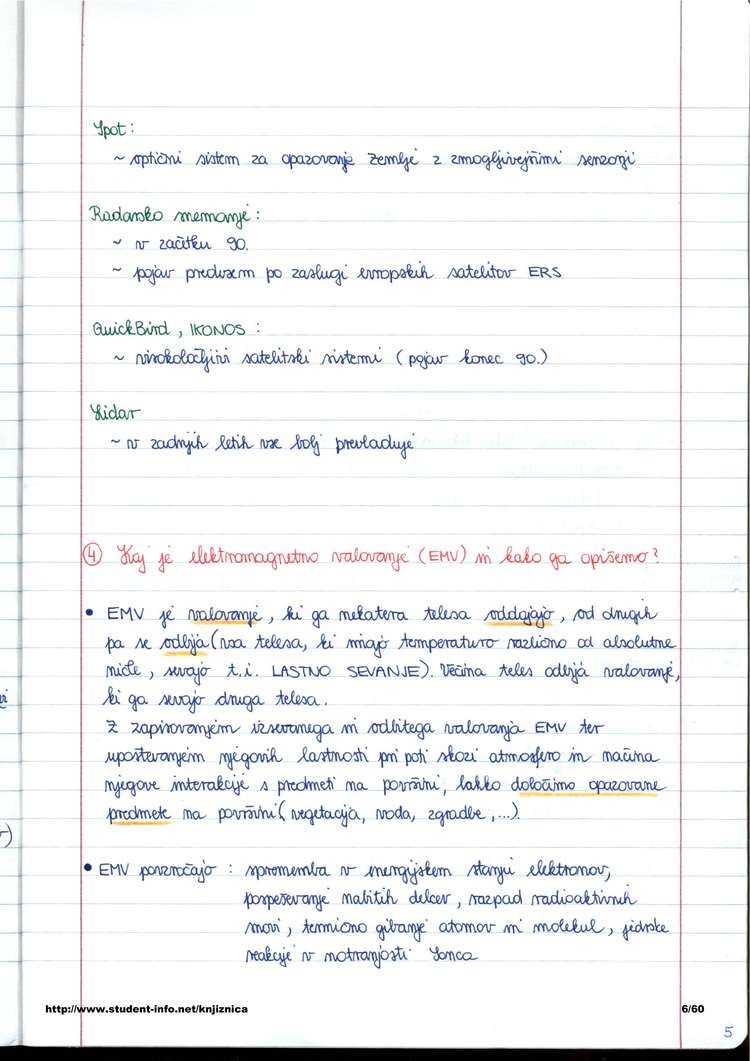 Spot:
~ optični sistem za opazovanje Zemlje z zmogljivejšimi senzorji
Radarsko snemanje:
~ v začetku 90.
~ pojav predvsem po zaslugi evropskih satelitov ERS
QuickBird, IKONOS:
~ visokoločljivi satelitski sistemi (pojav konec 90.)
Lidar
~ v zadnjih letih vse bolj prevladuje
④ Kaj je elektromagnetno valovanje (EMV) in kako ga opišemo?
• EMV je valovanje, ki ga nekatera telesa oddajajo, od drugih
pa se odbija (vsa telesa, ki imajo temperaturo različno od absolutne
ničle, sevajo t.i. LASTNO SEVANJE). Večina teles odbija valovanje,
ki ga sevajo druga telesa.
Z zapisovanjem izsevanega in odbitega valovanja EMV ter
upoštevanjem njegovih lastnosti pri poti skozi atmosfero in načina
njegove interakcije s predmeti na površini, lahko določimo opazovane
predmete na površini (vegetacija, voda, zgradbe,...).
• EMV povzročajo: sprememba v energijskem stanju elektronov,
pospeševanje nabitih delcev, razpad radioaktivnih
snovi, termično gibanje atomov in molekul, jedrske
reakcije v notranjosti Sonca
http://www.student-info.net/knjiznica
6/60
5